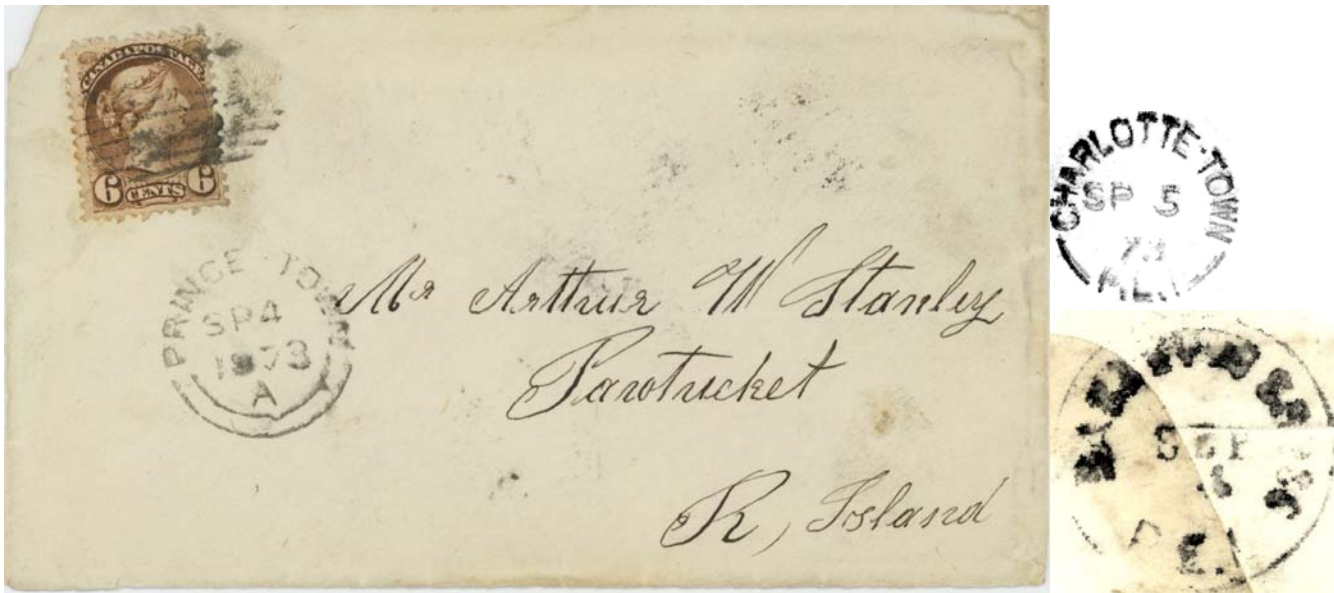 CANADA POSTAGE
6 CENTS 6
PRINCE-TOWN
SP 4
1873
A
Mr Arthur W Stanley
Pawtucket
R, Island
CHARLOTTE-TOWN
SP 5
73
P.E.I.
SEP
P.E.I.